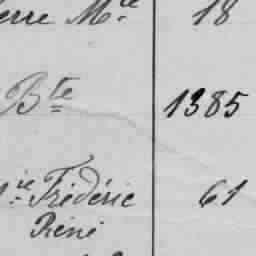 erre Mce 18
Bte 1385
ie Frédéric 61
Réné